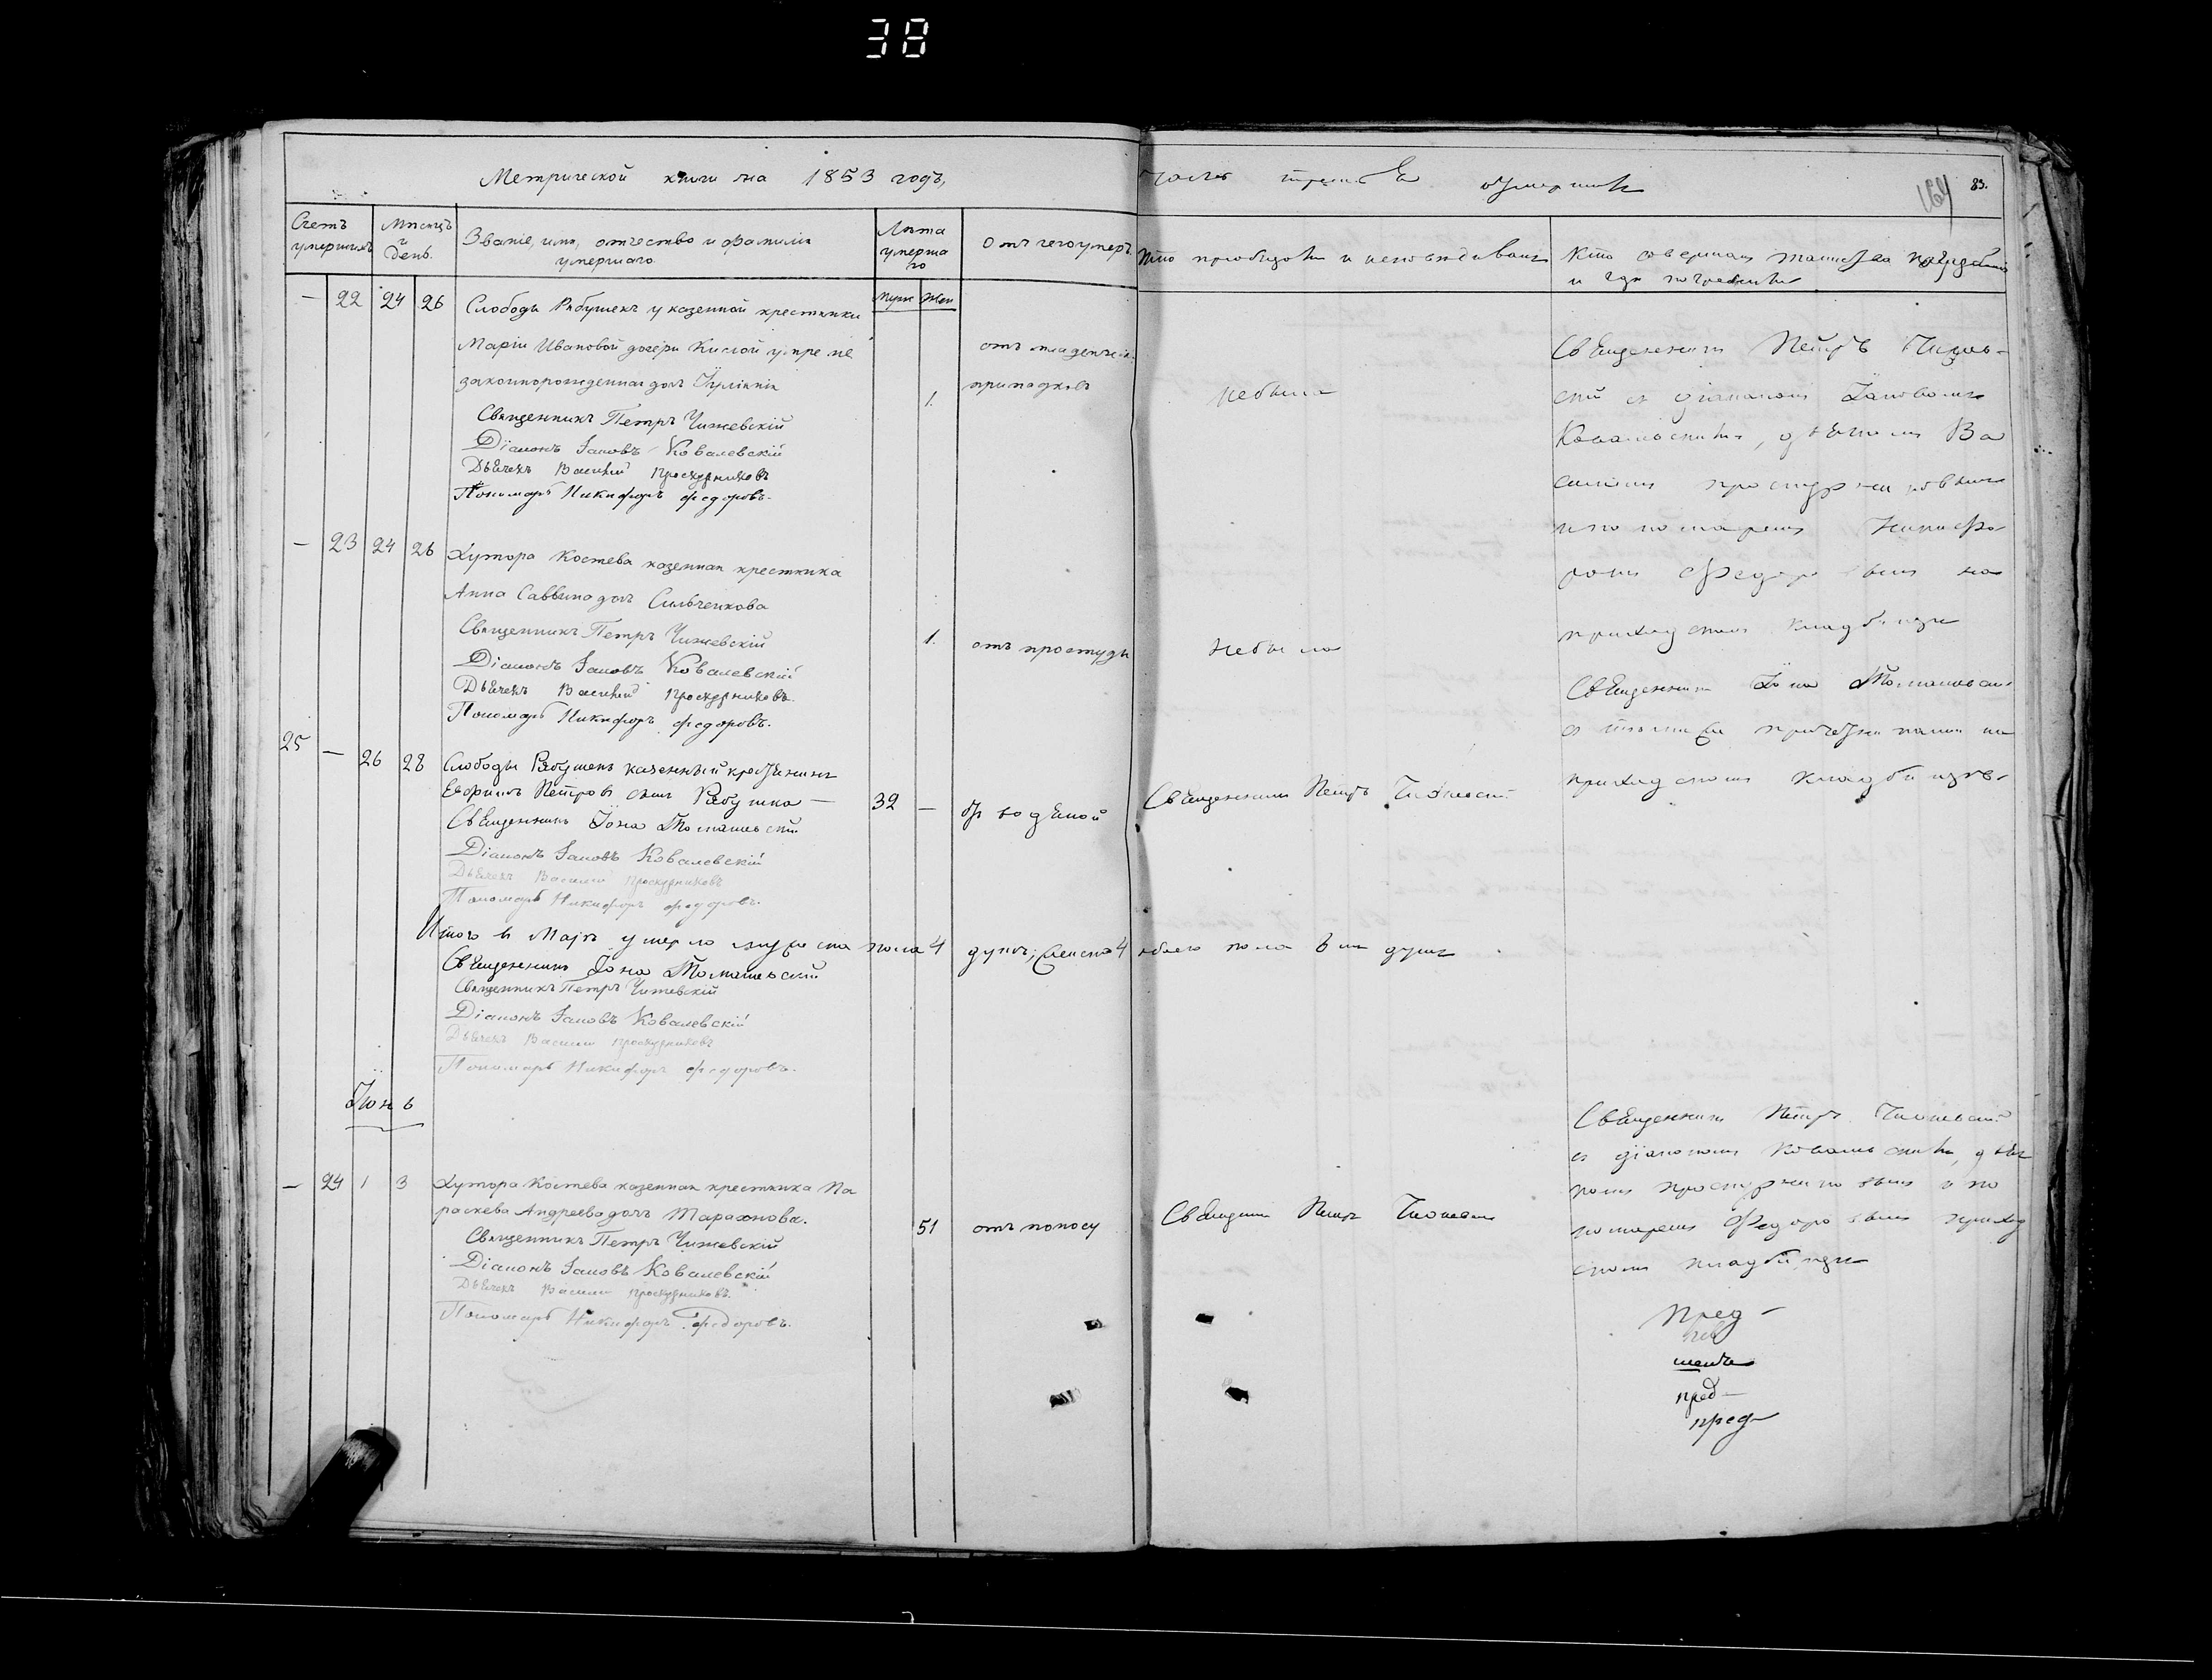 38
Метрической книги на 1853 годъ,
часть третья о умершихъ
164 83.
Счетъ умершихъ
Мѣсяцъ и день.
Званіе, имя, отчество и фамилія умершаго.
Лѣта умершаго
муж жен
Отъ чего умеръ
Кто исповѣдывалъ и пріобщалъ
Кто совершалъ погребеніе и гдѣ погребены
— 22 24 26 Слободы Рябушекъ у казенной крестьянки
Маріи Ивановой дочери Кислой умре не
законнорожденная дочь Іуліанія
1. отъ младенческ. припадковъ
небыла
Священникъ Петръ Чижевскій
Діаконъ Іаковъ Ковалевскій
Дьячекъ Василій Проскурниковъ
Пономарь Никифоръ Федоровъ.
Священникъ Петръ Чижев-
скій съ діакономъ Іаковомъ
Ковалевскимъ, дьячкомъ Ва
силіемъ Проскурниковымъ
и пономаремъ Никифо-
ромъ Федоровымъ на
приходскомъ кладбищѣ
— 23 24 26 Хутора Костева казенная крестьянка
Анна Саввина дочь Сильченкова
1. отъ простуды
небыла
Священникъ Петръ Чижевскій
Діаконъ Іаковъ Ковалевскій
Дьячекъ Василій Проскурниковъ.
Пономарь Никифоръ Федоровъ.
Священникъ Іона Томашевскій
съ причетниками на
приходскомъ кладбищѣ.
25 — 26 28 Слободы Рябушекъ казенный крестьянинъ
Петровъ сынъ Рябушка —
32 — отъ водяной
Священникъ Петръ Чижевскій
Священникъ Іона Томашевскій
Діаконъ Іаковъ Ковалевскій
Дьячекъ Василій Проскурниковъ
Пономарь Никифоръ Федоровъ.
Итого въ Маѣ умерло мужеска пола 4 душъ; женска 4 обоего пола 8 мъ душъ
Священникъ Іона Томашевскій
Священникъ Петръ Чижевскій
Діаконъ Іаковъ Ковалевскій
Дьячекъ Василій Проскурниковъ
Пономарь Никифоръ Федоровъ.
Іюнь
— 24 1 3 Хутора Костева казенная крестьянка Па
раскева Андреева дочь Тарахнова.
51 отъ поносу
Священникъ Петръ Чижевскій
Священникъ Петръ Чижевскій
Діаконъ Іаковъ Ковалевскій
Дьячекъ Василій Проскурниковъ.
Пономарь Никифоръ Федоровъ.
Священникъ Петръ Чижевскій
съ діакономъ Ковалевскимъ, дьяч
комъ Проскурниковымъ и по
номаремъ Федоровымъ приход
скомъ кладбищѣ
пред-
пред-
пред-